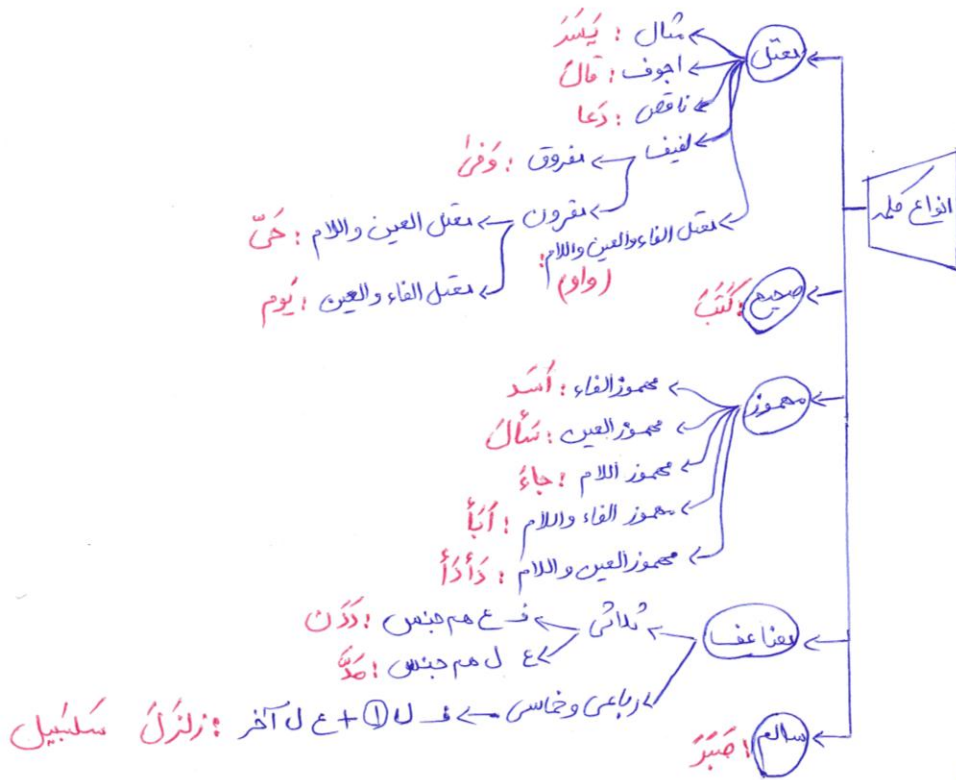 انواع کلمه
معتل
مثال : يَسَرَ
اجوف : قالَ
ناقص : دَعا
لفیف
مفروق : وَفیٰ
مقرون
معتل العین واللام : حَیَّ
معتل الفاء والعین : یَوم
معتل الفاء والعین واللام :
(واو)
صحیح : كَتَبَ
مهموز
مهموز الفاء : أسَد
مهموز العین : سَألَ
مهموز اللام : جاءَ
مهموز الفاء واللام : أَبَأَ
مهموز العین واللام : دَأدَأَ
مضاعف
ثلاثی
ف ع هم جنس : دَدَن
ع ل هم جنس : مَدَّ
رباعی و خماسی
ف ل ① + ع ل آخر : زلزَلَ سَلسَبیل
سالم : صَبَرَ